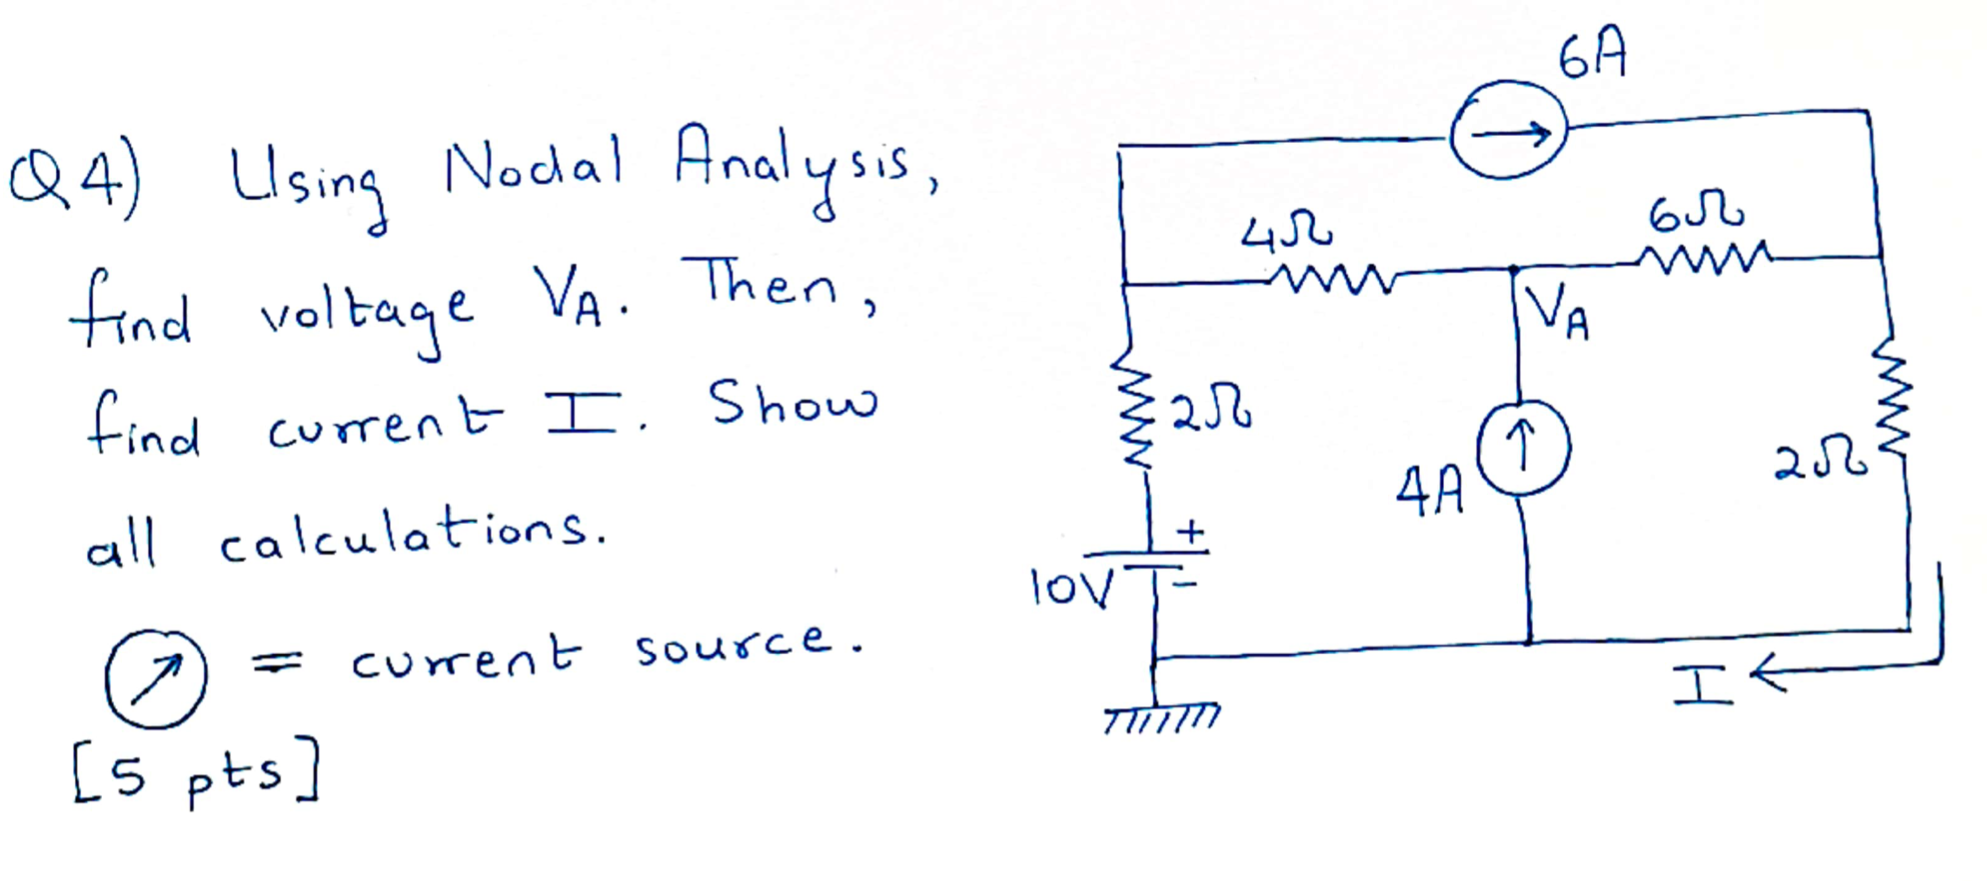 Q4) Using Nodal Analysis,
find voltage VA. Then,
find current I. Show
all calculations.
= current source.
[5 pts]
6A
4Ω
6Ω
VA
2Ω
4A
2Ω
+
10V
-
I